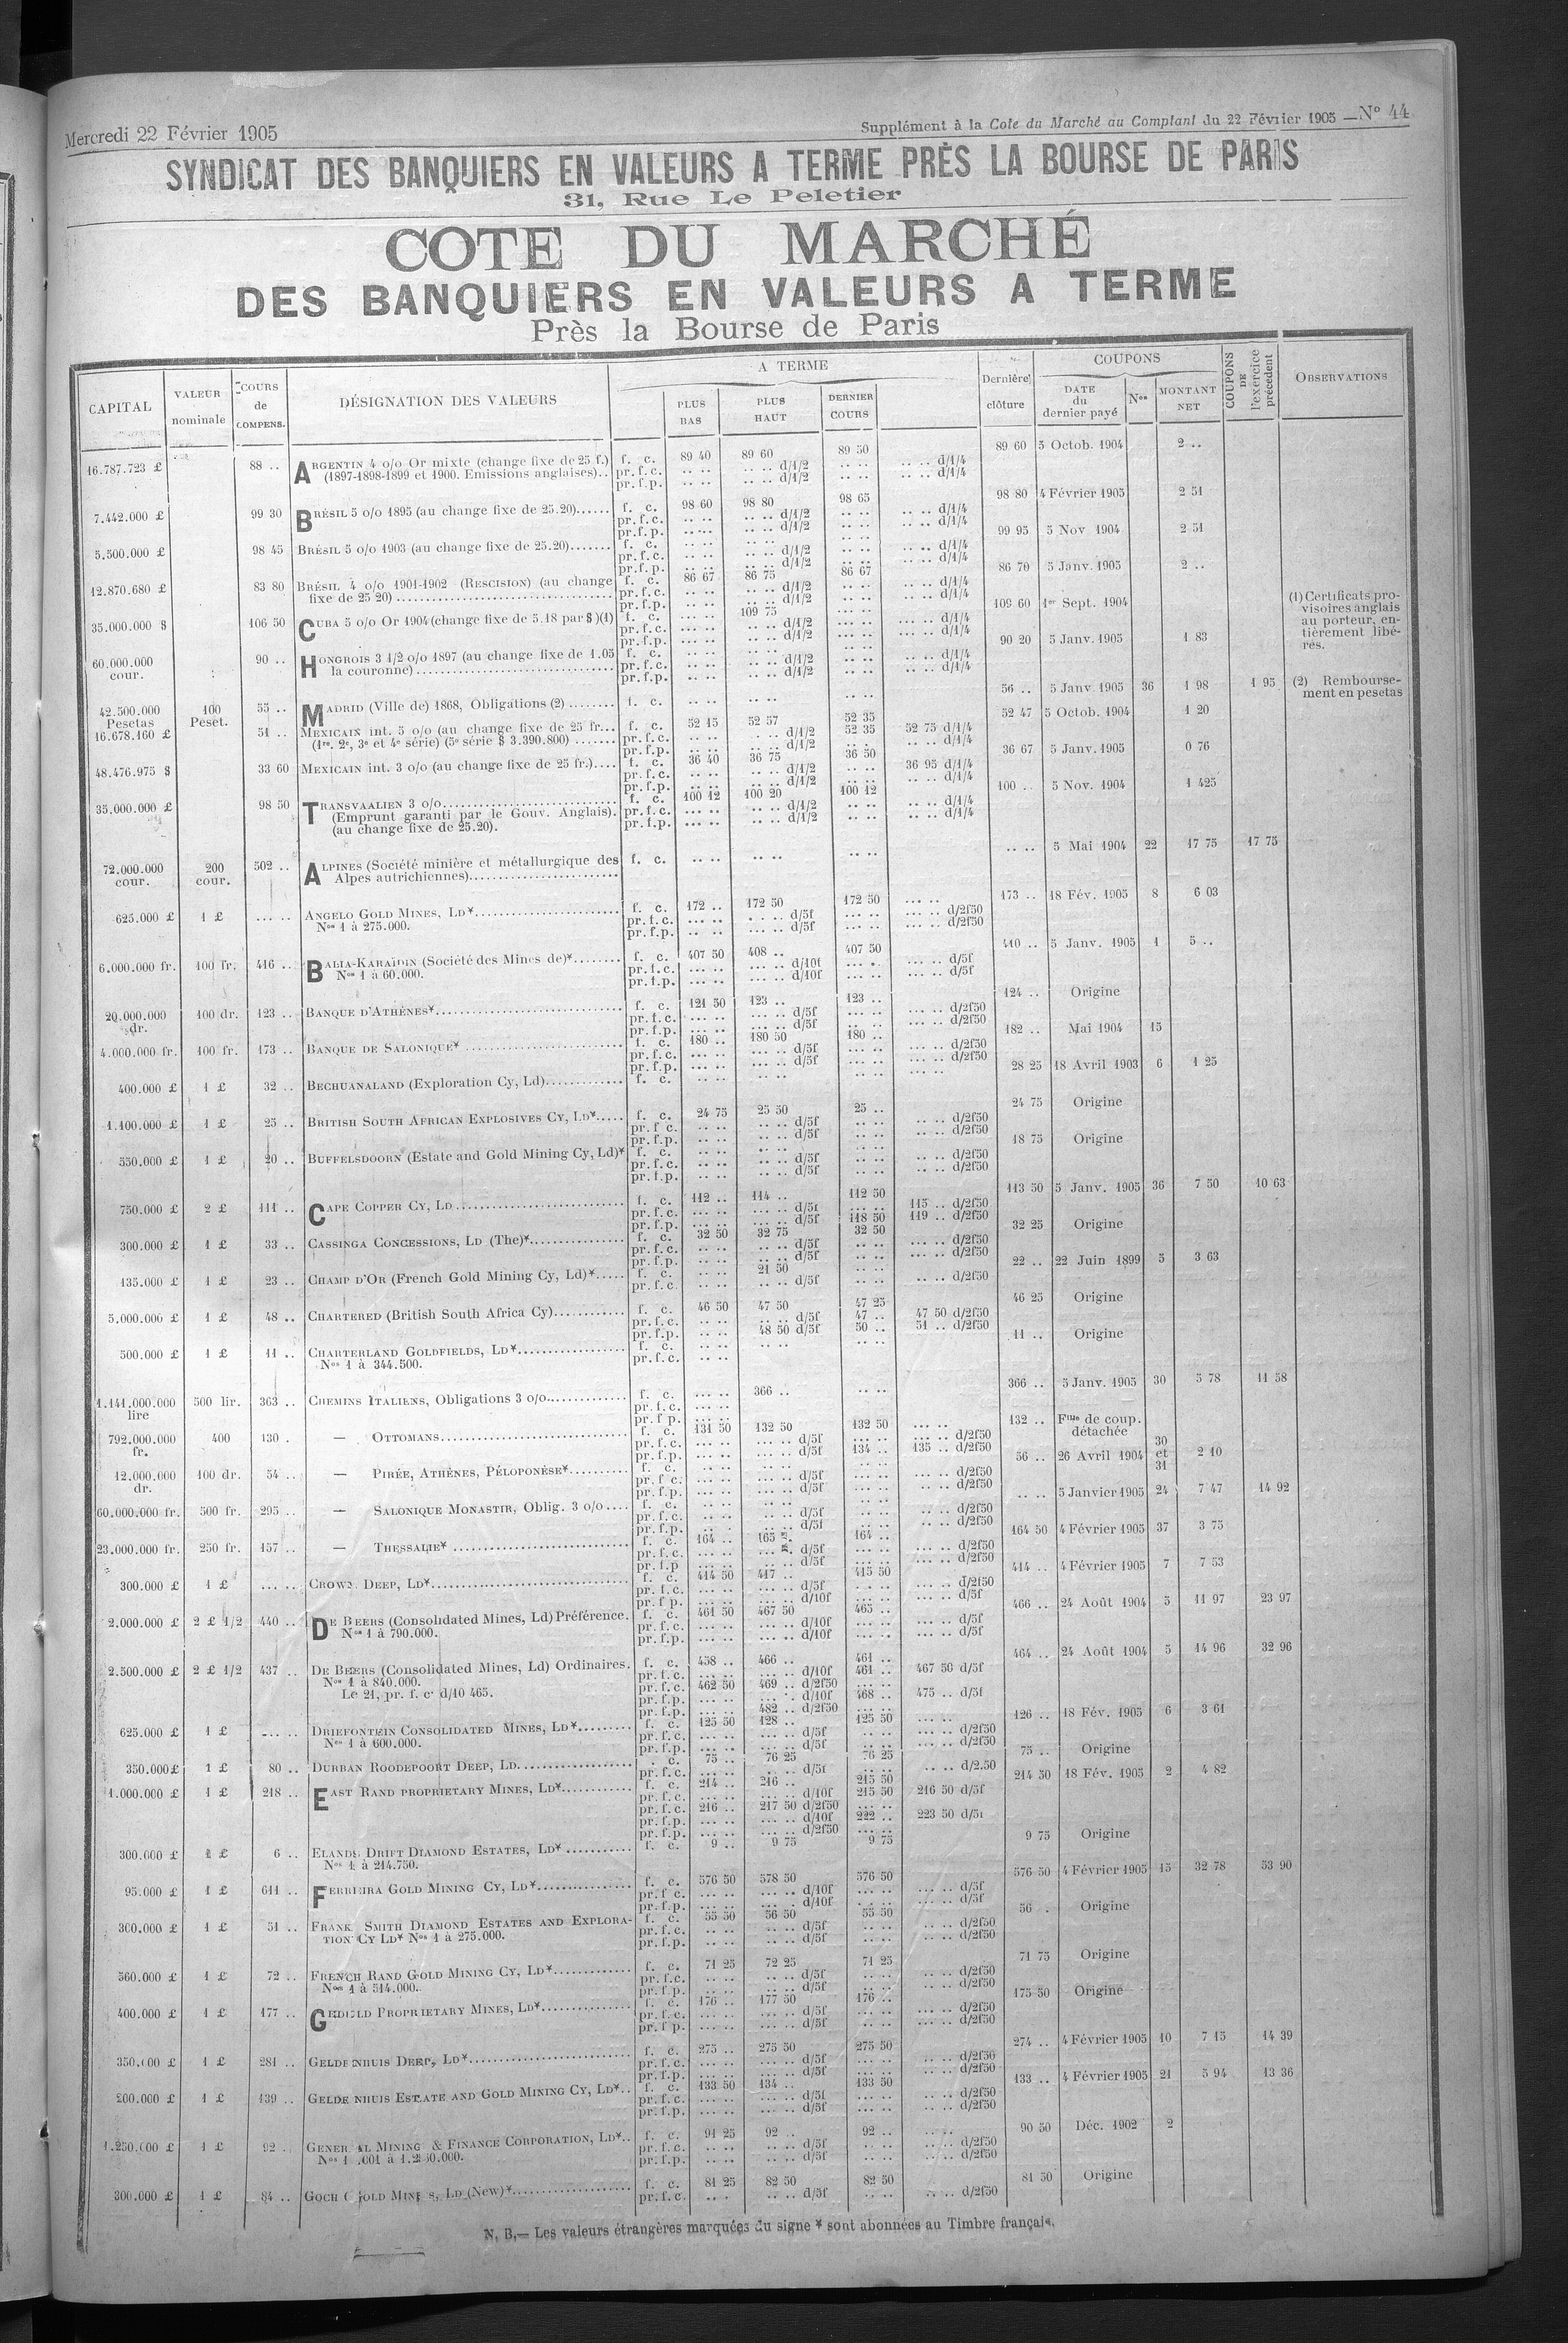 Mercredi 22 Février 1905
Supplément à la Cote du Marché au Comptant du 22 Février 1905 — N° 44
SYNDICAT DES BANQUIERS EN VALEURS A TERME PRÈS LA BOURSE DE PARIS
31, Rue Le Peletier
COTE DU MARCHÉ
DES BANQUIERS EN VALEURS A TERME
Près la Bourse de Paris
CAPITAL | VALEUR nominale | COURS de COMPENS. | DÉSIGNATION DES VALEURS | A TERME | PLUS BAS | PLUS HAUT | DERNIER COURS | Dernière clôture | COUPONS | DATE du dernier payé | Nos | MONTANT NET | COUPONS DE l'exercice précédent | OBSERVATIONS
16.787.723 £ 88 .. ARGENTIN 4 o/o Or mixte (change fixe de 25 f.) f. c. 89 40 89 60 89 50 89 60 5 Octob. 1904 2 ..
(1897-1898-1899 et 1900. Emissions anglaises).. pr. f. c. .. .. d/1/2 .. .. d/1/4
pr. f. p. .. .. d/1/2 .. .. d/1/4
7.442.000 £ 99 30 BRÉSIL 5 o/o 1895 (au change fixe de 25.20)...... f. c. 98 60 98 80 98 65 98 80 4 Février 1905 2 51
pr. f. c. .. .. d/1/2 .. .. d/1/4
pr. f. p. .. .. d/1/2 .. .. d/1/4
5.500.000 £ 98 45 BRÉSIL 5 o/o 1903 (au change fixe de 25.20)....... f. c. 99 95 5 Nov 1904 2 51
pr. f. c. .. .. d/1/2 .. .. d/1/4
pr. f. p. .. .. d/1/2 .. .. d/1/4
12.870.680 £ 83 80 BRÉSIL 4 o/o 1901-1902 (RESCISION) (au change f. c. 86 67 86 75 86 67 86 70 5 Janv. 1905 2 ..
fixe de 25 20) pr. f. c. .. .. d/1/2 .. .. d/1/4
pr. f. p. .. .. d/1/2 .. .. d/1/4
35.000.000 $ 106 50 CUBA 5 o/o Or 1904 (change fixe de 5.18 par $) (1) f. c. 109 75 109 60 1er Sept. 1904
(1) Certificats provisoires anglais au porteur, entièrement libérés.
pr. f. c. .. .. d/1/2 .. .. d/1/4
pr. f. p. .. .. d/1/2 .. .. d/1/4
60.000.000 cour. 90 .. HONGROIS 3 1/2 o/o 1897 (au change fixe de 1.05 f. c. 90 20 5 Janv. 1905 1 83
la couronne) pr. f. c. .. .. d/1/2 .. .. d/1/4
pr. f. p. .. .. d/1/2 .. .. d/1/4
42.500.000 Pesetas 100 Peset. 55 .. MADRID (Ville de) 1868, Obligations (2) ........ f. c. 56 .. 5 Janv. 1905 36 1 98 1 95
(2) Remboursement en pesetas
16.678.160 £ 51 .. MEXICAIN int. 5 o/o (au change fixe de 25 fr... f. c. 52 15 52 57 52 35 52 47 5 Octob. 1904 1 20
(1re, 2e, 3e et 4e série) (5e série $ 3.390.800) ....... pr. f. c. .. .. d/1/2 52 35 52 75 d/1/4
pr. f. p. .. .. d/1/2 .. .. d/1/4
48.476.975 $ 33 60 MEXICAIN int. 3 o/o (au change fixe de 25 fr.).... f. c. 36 40 36 75 36 50 36 67 5 Janv. 1905 0 76
pr. f. c. .. .. d/1/2 36 95 d/1/4
pr. f. p. .. .. d/1/2 .. .. d/1/4
35.000.000 £ 98 50 TRANSVAALIEN 3 o/o f. c. 100 12 100 20 100 12 100 .. 5 Nov. 1904 1 425
(Emprunt garanti par le Gouv. Anglais). pr. f. c. .. .. d/1/2 .. .. d/1/4
(au change fixe de 25.20). pr. f. p. .. .. d/1/2 .. .. d/1/4
72.000.000 cour. 200 cour. 502 .. ALPINES (Société minière et métallurgique des f. c. 5 Mai 1904 22 17 75 17 75
Alpes autrichiennes)
625.000 £ 1 £ ANGELO GOLD MINES, LD* f. c. 172 .. 172 50 172 50 173 .. 18 Fév. 1905 8 6 03
Nos 1 à 275.000. pr. f. c. .. .. d/5f .. .. d/2f50
pr. f. p. .. .. d/5f .. .. d/2f50
6.000.000 fr. 100 fr. 416 .. BALIA-KARAÏDIN (Société des Mines de)* f. c. 407 50 408 .. 407 50 410 .. 5 Janv. 1905 1 5 ..
Nos 1 à 60.000. pr. f. c. .. .. d/10f .. .. d/5f
pr. f. p. .. .. d/10f .. .. d/5f
20.000.000 dr. 100 dr. 123 .. BANQUE D'ATHÈNES* f. c. 121 50 123 .. 123 .. 124 .. Origine
pr. f. c. .. .. d/5f .. .. d/2f50
pr. f. p. .. .. d/5f .. .. d/2f50
4.000.000 fr. 100 fr. 173 .. BANQUE DE SALONIQUE* f. c. 180 .. 180 50 180 .. 182 .. Mai 1904 15
pr. f. c. .. .. d/5f .. .. d/2f50
pr. f. p. .. .. d/5f .. .. d/2f50
400.000 £ 1 £ 32 .. BECHUANALAND (Exploration Cy, Ld) f. c. 28 25 18 Avril 1903 6 1 25
1.100.000 £ 1 £ 25 .. BRITISH SOUTH AFRICAN EXPLOSIVES CY, LD* f. c. 24 75 25 50 25 .. 24 75 Origine
pr. f. c. .. .. d/5f .. .. d/2f50
pr. f. p. .. .. d/5f .. .. d/2f50
550.000 £ 1 £ 20 .. BUFFELSDOORN (Estate and Gold Mining Cy, Ld)* f. c. 18 75 Origine
pr. f. c. .. .. d/5f .. .. d/2f50
pr. f. p. .. .. d/5f .. .. d/2f50
750.000 £ 2 £ 111 .. CAPE COPPER CY, LD f. c. 112 .. 114 .. 112 50 113 50 5 Janv. 1905 36 7 50 10 63
pr. f. c. .. .. d/5f .. .. 115 .. d/2f50
pr. f. p. .. .. d/5f 118 50 119 .. d/2f50
300.000 £ 1 £ 33 .. CASSINGA CONCESSIONS, LD (The)* f. c. 32 50 32 75 32 50 32 25 Origine
pr. f. c. .. .. d/5f .. .. d/2f50
pr. f. p. .. .. d/5f .. .. d/2f50
135.000 £ 1 £ 23 .. CHAMP D'OR (French Gold Mining Cy, Ld)* f. c. 21 50 22 .. 22 Juin 1899 5 3 63
pr. f. c. .. .. d/5f .. .. d/2f50
5.000.000 £ 1 £ 48 .. CHARTERED (British South Africa Cy) f. c. 46 50 47 50 47 25 46 25 Origine
pr. f. c. .. .. d/5f 47 .. 47 50 d/2f50
pr. f. p. 48 50 d/5f 50 .. 51 .. d/2f50
500.000 £ 1 £ 11 .. CHARTERLAND GOLDFIELDS, LD* f. c. 11 .. Origine
Nos 1 à 344.500. pr. f. c.
1.141.000.000 lire 500 lir. 363 .. CHEMINS ITALIENS, Obligations 3 o/o f. c. 366 .. 366 .. 5 Janv. 1905 30 5 78 11 58
pr. f. c.
pr. f. p.
792.000.000 fr. 400 130 . — OTTOMANS f. c. 131 50 132 50 132 50 132 .. Ftme de coup. détachée
pr. f. c. .. .. d/5f .. .. d/2f50
pr. f. p. .. .. d/5f 134 .. 135 .. d/2f50
12.000.000 dr. 100 dr. 54 .. — PIRÉE, ATHÈNES, PÉLOPONÈSE* f. c. 56 .. 26 Avril 1904 30 et 31 2 10
pr. f. c. .. .. d/5f .. .. d/2f50
pr. f. p. .. .. d/5f .. .. d/2f50
60.000.000 fr. 500 fr. 295 .. — SALONIQUE MONASTIR, Oblig. 3 o/o f. c. 5 Janvier 1905 24 7 47 14 92
pr. f. c. .. .. d/5f .. .. d/2f50
pr. f. p. .. .. d/5f .. .. d/2f50
23.000.000 fr. 250 fr. 157 .. — THESSALIE* f. c. 164 .. 165 164 .. 164 50 4 Février 1905 37 3 75
pr. f. c. .. .. d/5f .. .. d/2f50
pr. f. p .. .. d/5f .. .. d/2f50
300.000 £ 1 £ CROWN DEEP, LD* f. c. 414 50 417 .. 415 50 414 .. 4 Février 1905 7 7 53
pr. f. c. .. .. d/5f .. .. d/2f50
pr. f. p. .. .. d/10f .. .. d/5f
2.000.000 £ 2 £ 1/2 440 .. DE BEERS (Consolidated Mines, Ld) Préférence. f. c. 461 50 467 50 465 .. 466 .. 24 Août 1904 5 11 97 23 97
Nos 1 à 790.000. pr. f. c. .. .. d/10f .. .. d/5f
pr. f. p. .. .. d/10f .. .. d/5f
2.500.000 £ 2 £ 1/2 437 .. DE BEERS (Consolidated Mines, Ld) Ordinaires. f. c. 458 .. 466 .. 461 .. 464 .. 24 Août 1904 5 14 96 32 96
Nos 1 à 840.000. pr. f. c. .. .. d/10f 461 .. 467 50 d/5f
Le 21, pr. f. c. d/10 465. pr. f. c. 462 50 469 .. d/2f50
pr. f. p. .. .. d/10f 468 .. 475 .. d/5f
pr. f. p. 482 .. d/2f50
625.000 £ 1 £ DRIEFONTEIN CONSOLIDATED MINES, LD* f. c. 125 50 128 .. 125 50 126 .. 18 Fév. 1905 6 3 61
Nos 1 à 600.000. pr. f. c. .. .. d/5f .. .. d/2f50
pr. f. p. .. .. d/5f .. .. d/2f50
350.000 £ 1 £ 80 .. DURBAN ROODEPOORT DEEP, LD. . c. 75 .. 76 25 76 25 75 .. Origine
pr. f. c. .. .. d/5f .. .. d/2.50
1.000.000 £ 1 £ 218 .. EAST RAND PROPRIETARY MINES, LD* f. c. 214 .. 216 .. 215 50 214 50 18 Fév. 1905 2 4 82
pr. f. c. .. .. d/10f 215 50 216 50 d/5f
pr. f. c. 216 .. 217 50 d/2f50
pr. f. p. .. .. d/10f 222 .. 223 50 d/5f
pr. f. p. .. .. d/2f50
300.000 £ 1 £ 6 .. ELANDS DRIFT DIAMOND ESTATES, LD* f. c. 9 .. 9 75 9 75 9 75 Origine
Nos 1 à 214.750.
95.000 £ 1 £ 611 .. FERREIRA GOLD MINING CY, LD* f. c. 576 50 578 50 576 50 576 50 4 Février 1905 15 32 78 53 90
pr. f. c. .. .. d/10f .. .. d/5f
pr. f. p. .. .. d/10f .. .. d/5f
300.000 £ 1 £ 51 .. FRANK SMITH DIAMOND ESTATES AND EXPLORA- f. c. 55 50 56 50 55 50 56 . Origine
TION CY LD* Nos 1 à 275.000. pr. f. c. .. .. d/5f .. .. d/2f50
pr. f. p. .. .. d/5f .. .. d/2f50
560.000 £ 1 £ 72 .. FRENCH RAND GOLD MINING CY, LD* f. c. 71 25 72 25 71 25 71 75 Origine
Nos 1 à 514.000. pr. f. c. .. .. d/5f .. .. d/2f50
pr. f. p. .. .. d/5f .. .. d/2f50
400.000 £ 1 £ 177 .. GEDULD PROPRIETARY MINES, LD* f. c. 176 .. 177 50 176 .. 175 50 Origine
pr. f. c. .. .. d/5f .. .. d/2f50
pr. f. p. .. .. d/5f .. .. d/2f50
350.000 £ 1 £ 281 .. GELDENHUIS DEEP, LD* f. c. 275 .. 275 50 275 50 274 .. 4 Février 1905 10 7 15 14 39
pr. f. c. .. .. d/5f .. .. d/2f50
pr. f. p. .. .. d/5f .. .. d/2f50
200.000 £ 1 £ 139 .. GELDENHUIS ESTATE AND GOLD MINING CY, LD* f. c. 133 50 134 .. 133 50 133 .. 4 Février 1905 21 5 94 13 36
pr. f. c. .. .. d/5f .. .. d/2f50
pr. f. p. .. .. d/5f .. .. d/2f50
1.250.000 £ 1 £ 92 .. GENERAL MINING & FINANCE CORPORATION, LD* f. c. 91 25 92 .. 92 .. 90 50 Déc. 1902 2
pr. f. c. .. .. d/5f .. .. d/2f50
pr. f. p. .. .. d/5f .. .. d/2f50
300.000 £ 1 £ 84 .. GOCH GOLD MINES, LD (New)* f. c. 81 25 82 50 82 50 81 50 Origine
pr. f. c. .. .. d/5f .. .. d/2f50
N. B.— Les valeurs étrangères marquées du signe * sont abonnées au Timbre français.